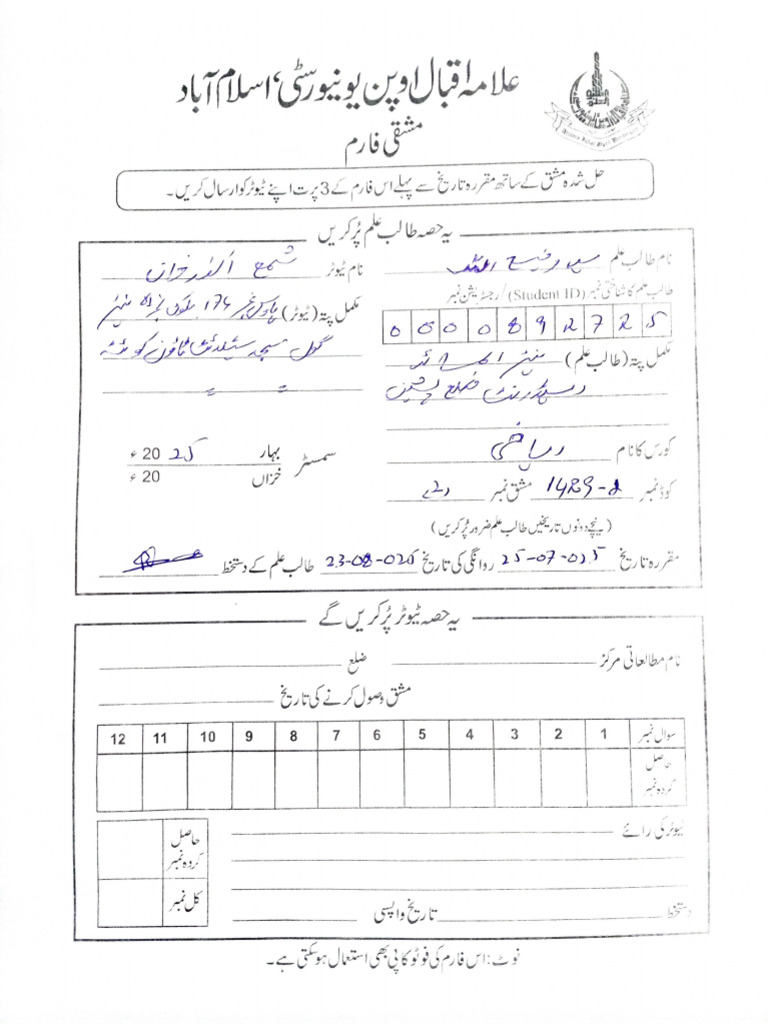 علامہ اقبال اوپن یونیورسٹی، اسلام آباد
مشقی فارم
حل شدہ مشق کے ساتھ مقررہ تاریخ سے پہلے اس فارم کے 3 پرت اپنے ٹیوٹر کو ارسال کریں۔
یہ حصہ طالب علم پُر کریں
نام طالب علم سید رفیع اللہ نام ٹیوٹر شمع
طالب علم کا شناختی نمبر (Student ID)/رجسٹریشن نمبر
0 0 0 0 8 9 2 7 2 5
مکمل پتہ (ٹیوٹر) ہاوس نمبر 174 بلاک نمبر
گول مسجد سٹیلائٹ ٹاؤن کوئٹہ
مکمل پتہ (طالب علم)
ضلع پشین
کورس کا نام ریاضی سمسٹر بہار 2025ء
خزاں 20ء
کوڈ نمبر 1429-2 مشق نمبر (2)
(نیچے دونوں تاریخیں طالب علم ضرور پُر کریں)
مقررہ تاریخ 25-07-025 روانگی کی تاریخ 23-08-025 طالب علم کے دستخط
یہ حصہ ٹیوٹر پُر کریں گے
نام مطالعاتی مرکز ضلع
مشق وصول کرنے کی تاریخ
سوال نمبر 1 2 3 4 5 6 7 8 9 10 11 12
حاصل کردہ نمبر
ٹیوٹر کی رائے
حاصل کردہ نمبر
کل نمبر
دستخط تاریخ واپسی
نوٹ: اس فارم کی فوٹو کاپی بھی استعمال ہو سکتی ہے۔